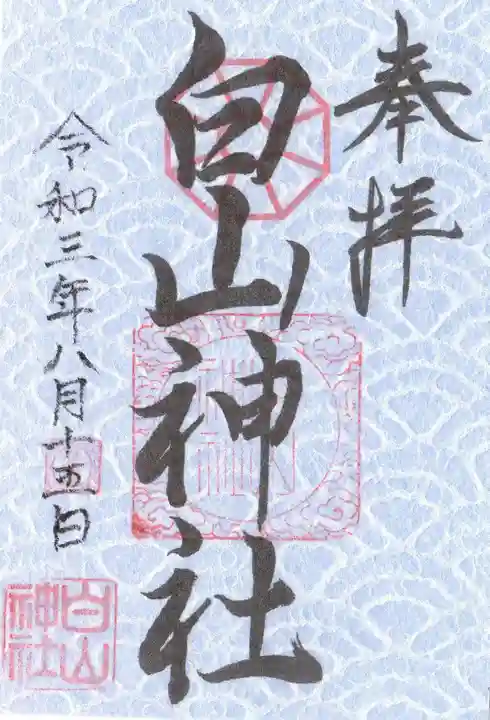 奉拝
白山神社
令和三年八月十五日
白山
神社